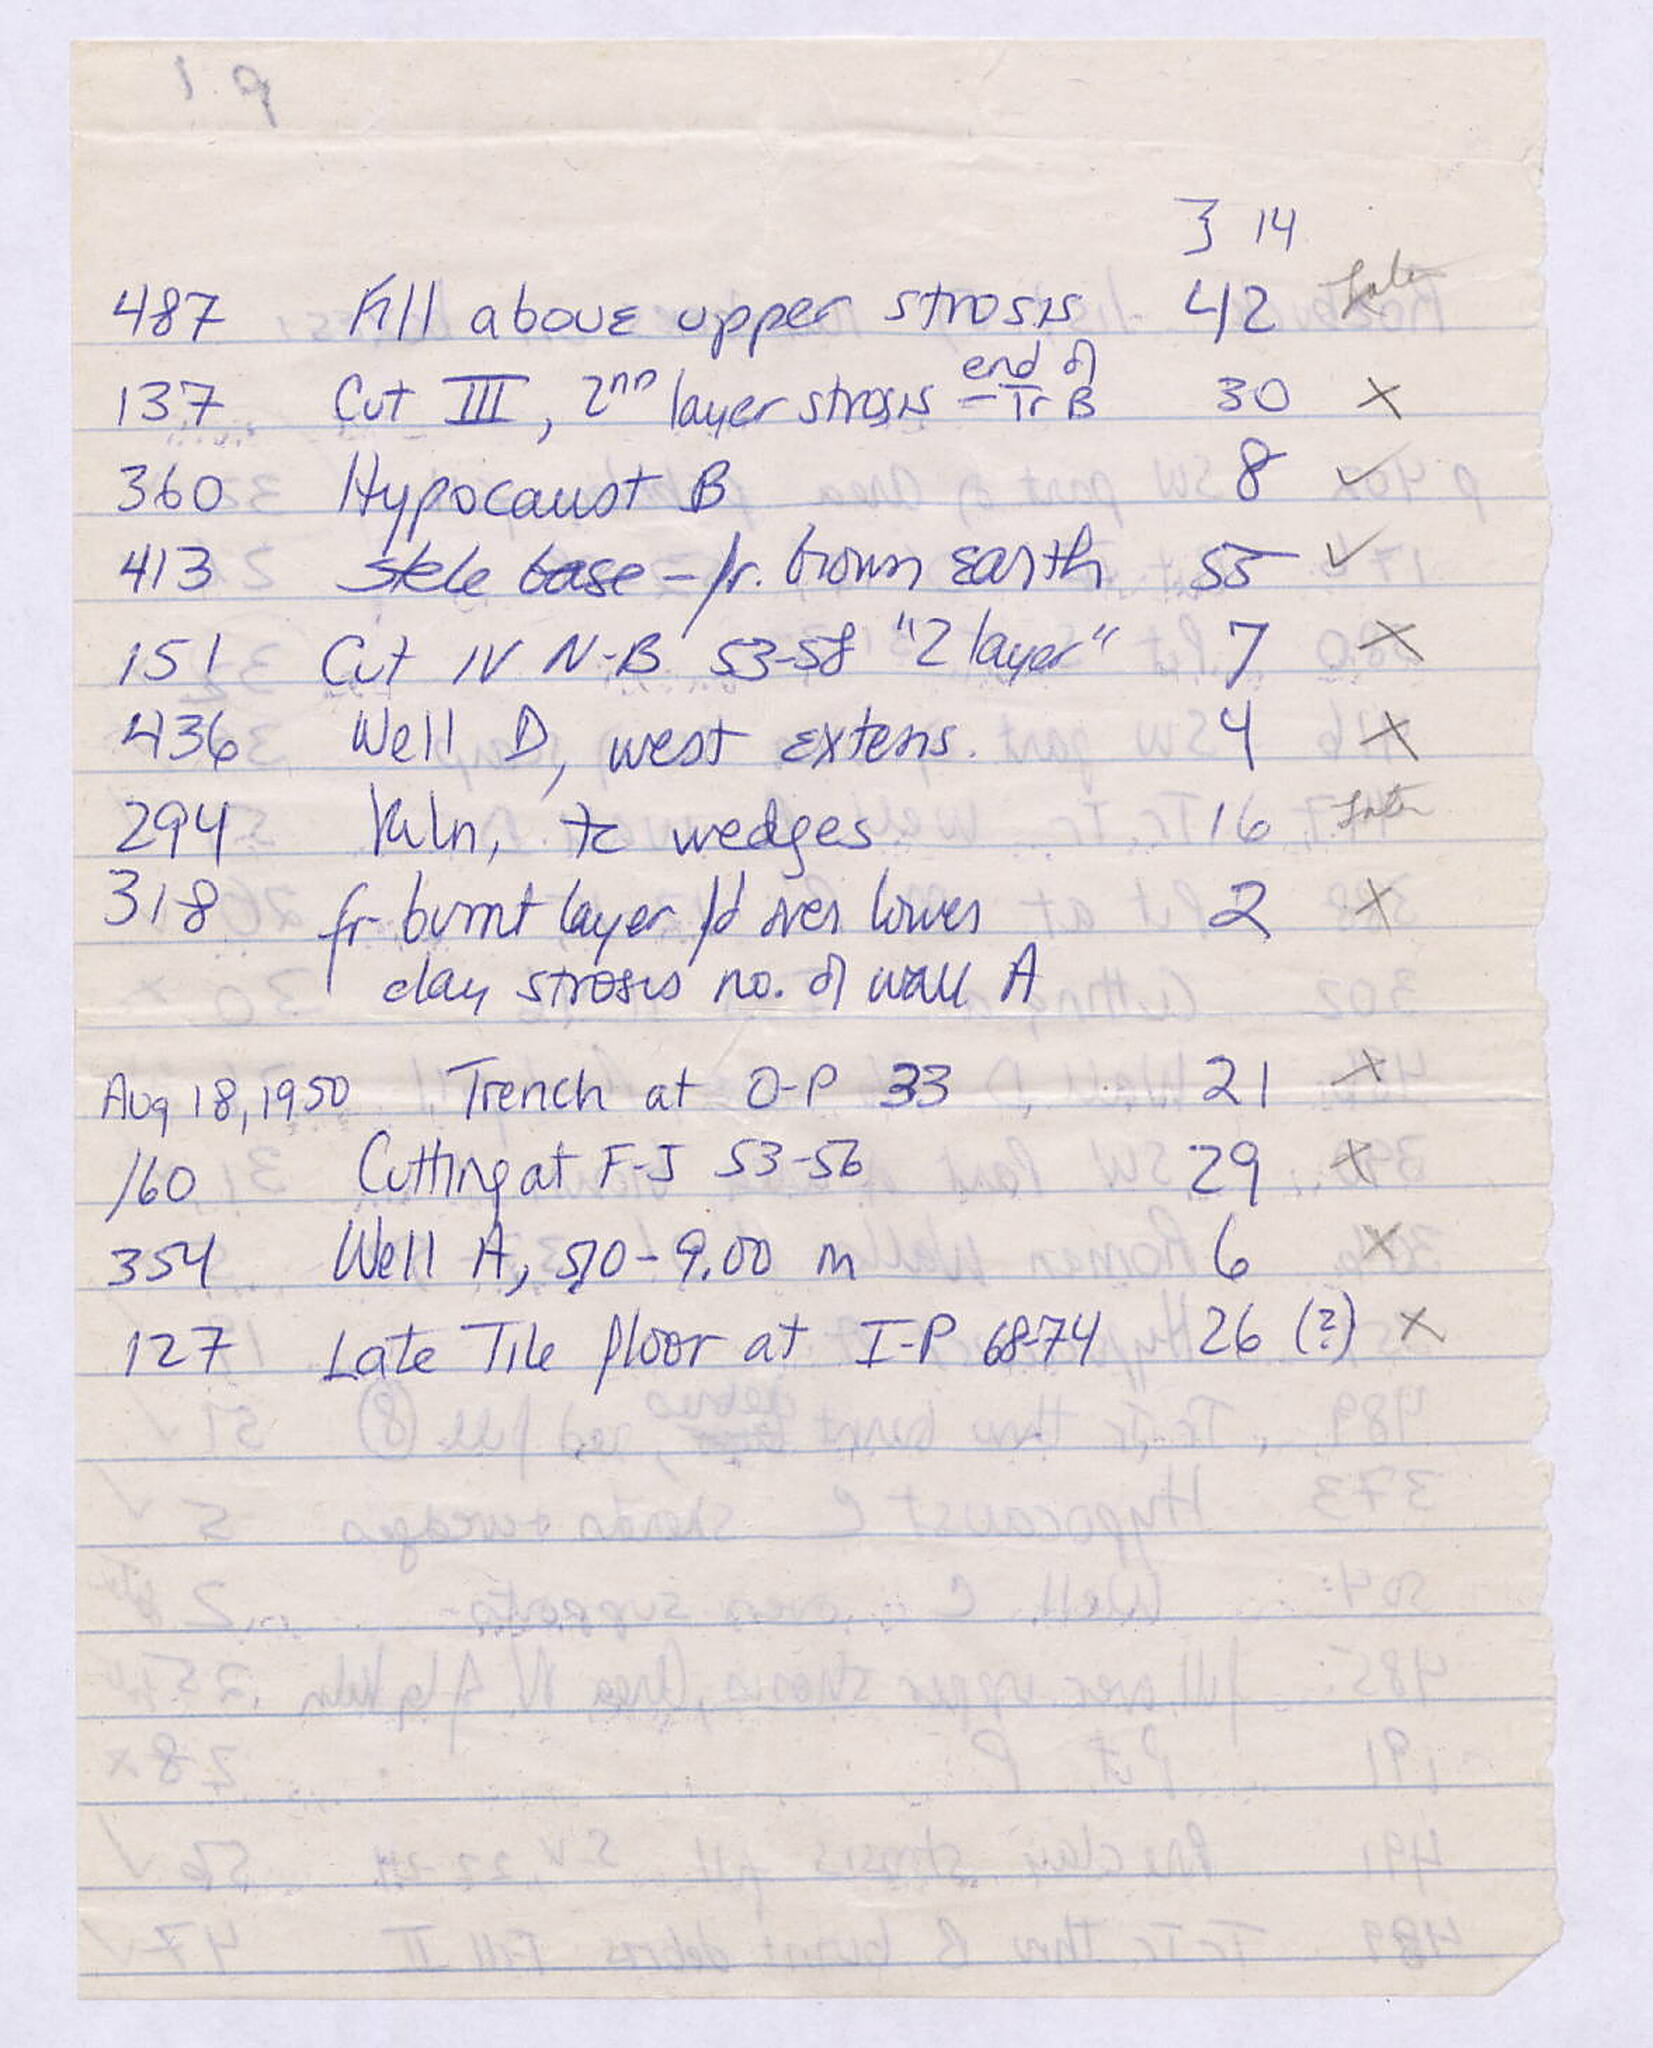 3 14
487 Fill above upper strosis 42 Later
137 Cut III, 2nd layer strosis – end of Tr B 30 x
360 Hypocaust B 8 ✓
413 stele base – fr. brown earth 55 ✓
151 Cut IV N-B 53-58 "2 layer" 7 x
436 Well D, west extens. 4 x
294 Kiln, tc wedges 16 Later
318 fr burnt layer f'd over lower 2 x
clay strosis no. of wall A
Aug 18, 1950 Trench at O-P 33 21 x
160 Cutting at F-J 53-56 29 x
354 Well A, 5.10-9.00 m 6 x
127 Late Tile floor at I-P 68-74 26 (?) x